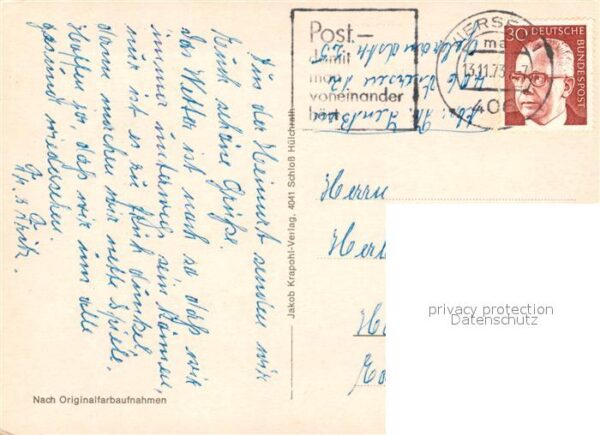 Aus der Heimat senden wir
Euch schöne Grüße.
Das Wetter ist noch so daß wir
immer unterwegs sein können,
nur ist es zu früh dunkel,
dann machen wir nette Spiele.
Hoffen wir, daß wir uns alle
gesund wiedersehen.
Fritz.
Nach Originalfarbaufnahmen
Jakob Krapohl-Verlag, 4041 Schloß Hülchrath
Post –
damit
man
voneinander
hört
VIERSEN
13.11.73
406
30 DEUTSCHE
BUNDESPOST
406 Viersen 12
Herrn
privacy protection
Datenschutz